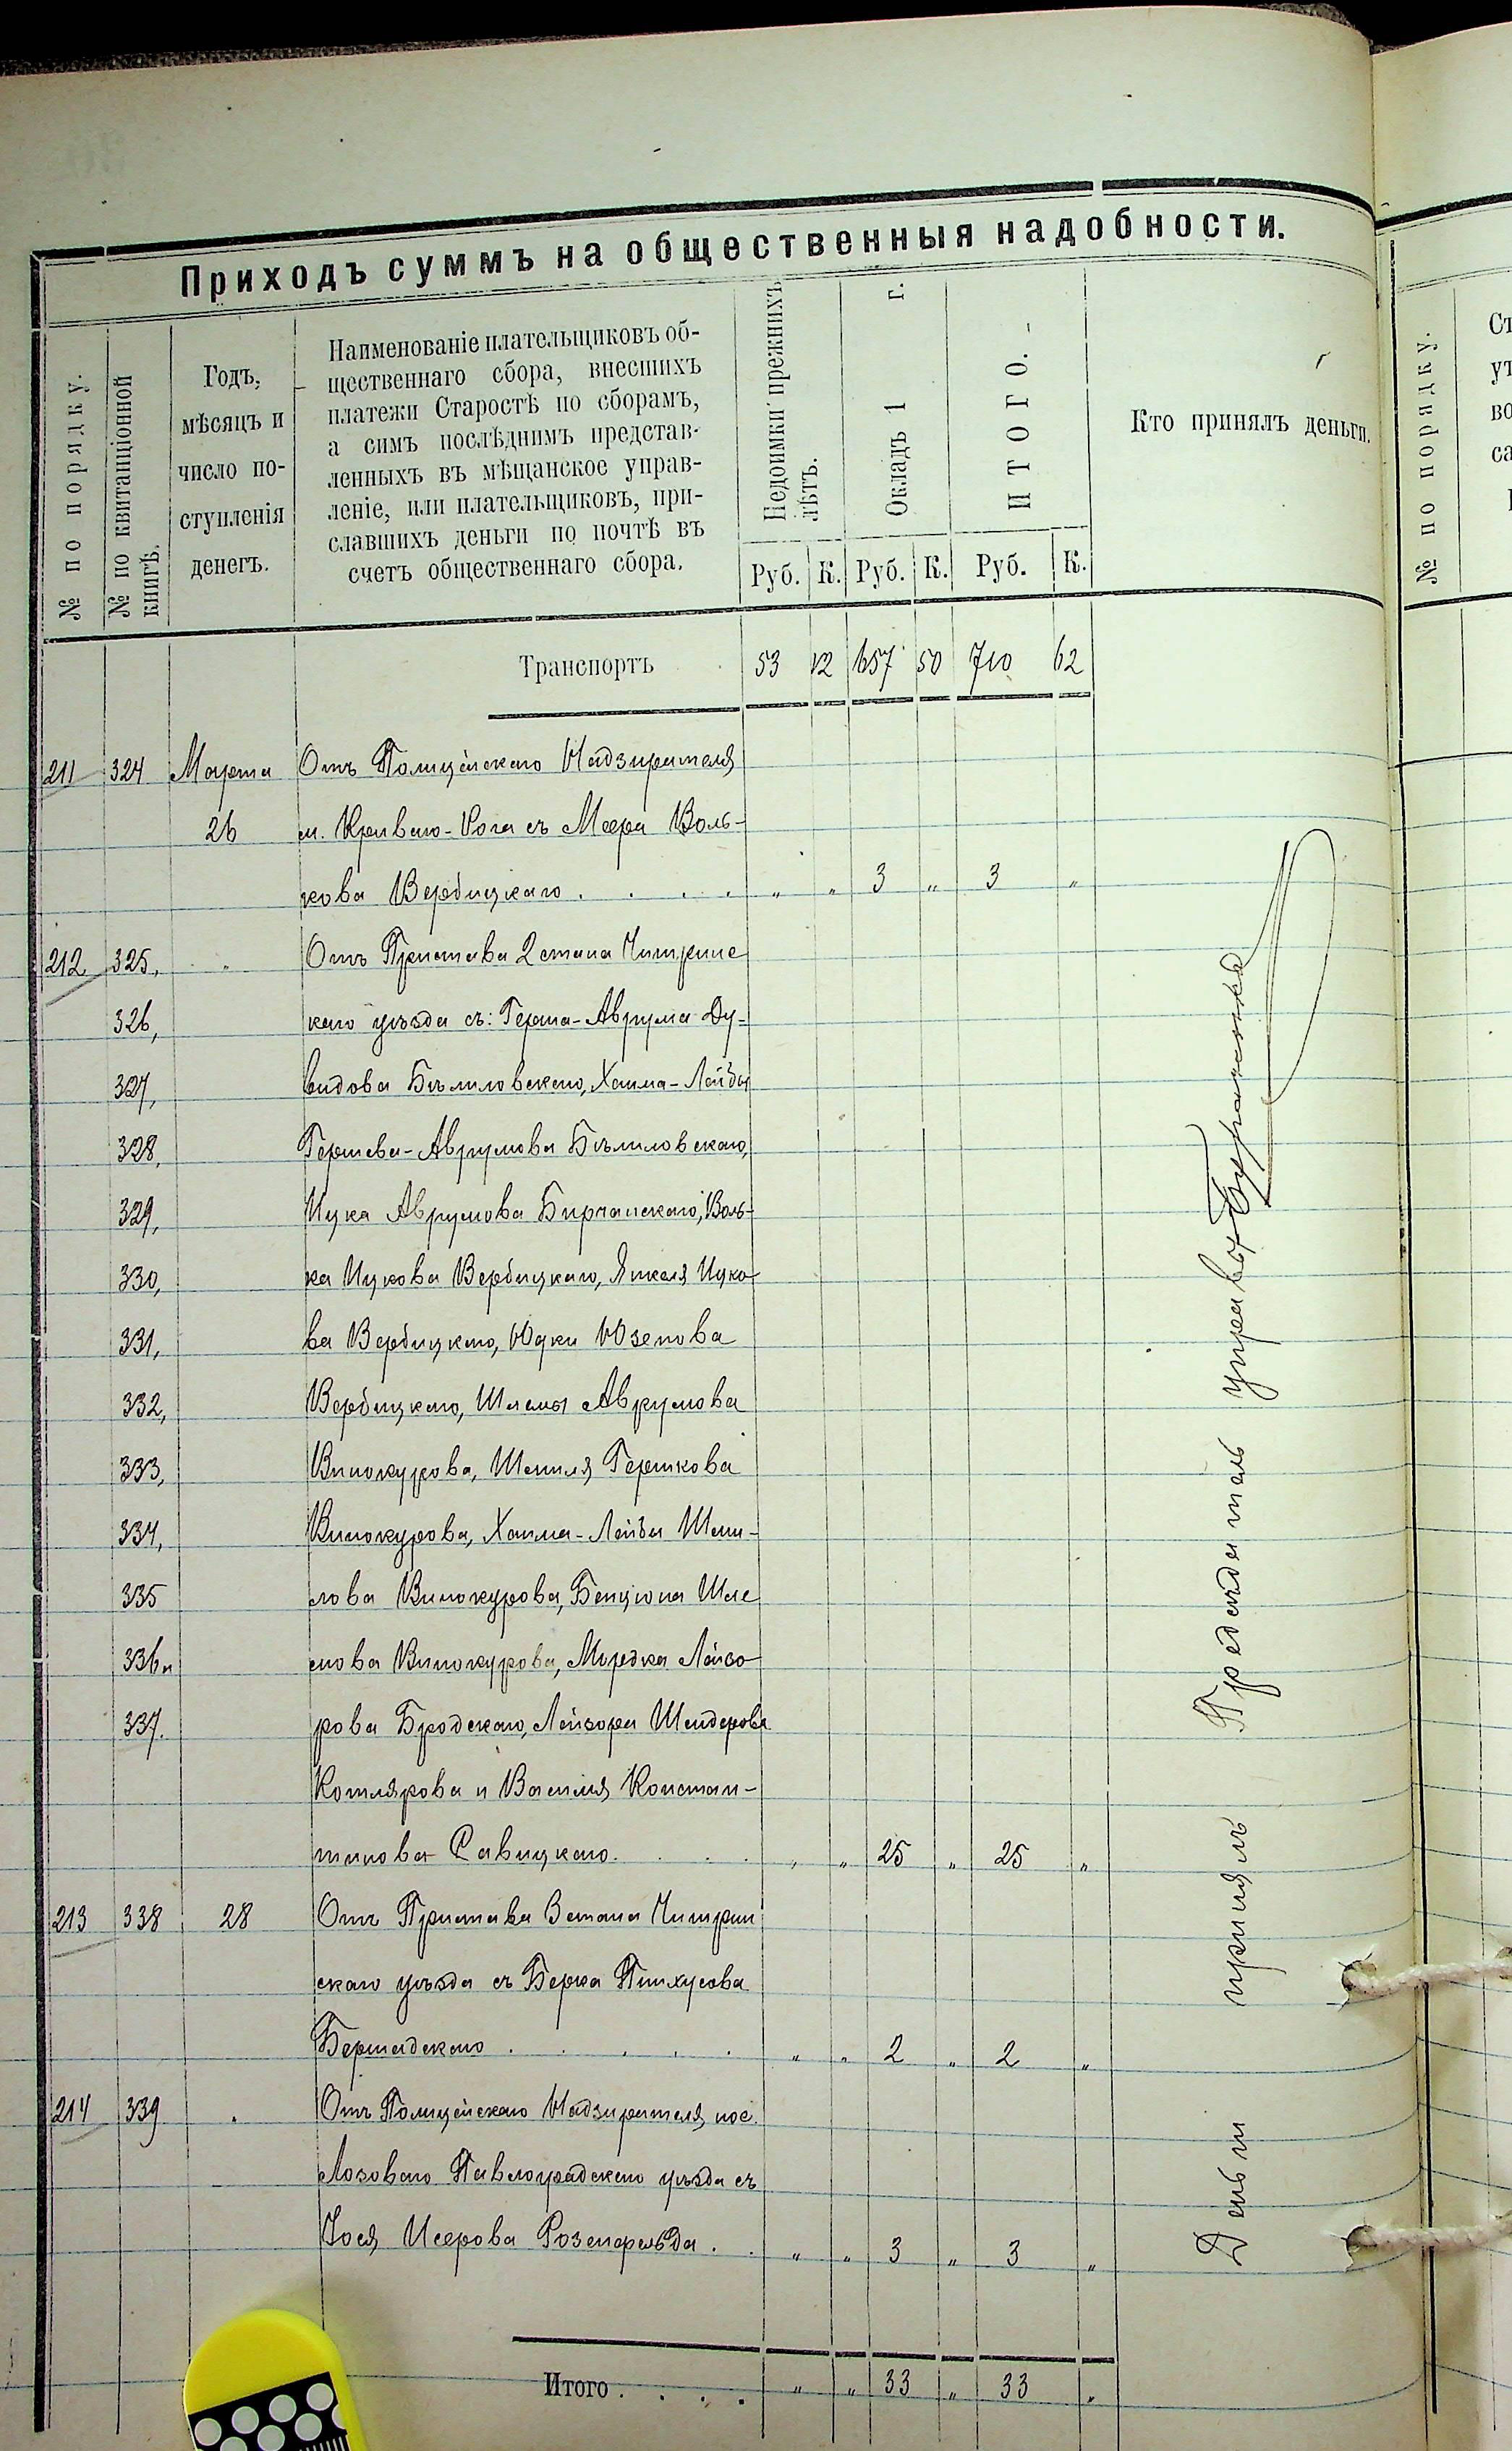 Приходъ суммъ на общественныя надобности.
№ по порядку.
№ по квитанціонной
книгѣ.
Годъ,
мѣсяцъ и
число по-
ступленія
денегъ.
Наименованіе плательщиковъ об-
щественнаго сбора, внесшихъ
платежи Старостѣ по сборамъ,
а симъ послѣднимъ представ-
ленныхъ въ мѣщанское управ-
леніе, или плательщиковъ, при-
славшихъ деньги по почтѣ въ
счетъ общественнаго сбора.
Недоимки прежнихъ
лѣтъ.
Окладъ 1 г.
ИТОГО.
Кто принялъ деньги.
Руб. К. Руб. К. Руб. К.
Транспортъ 53 12 657 50 710 62
211 324 Марта Отъ Полицейскаго Надзирателя
26 м. Криваго-Рога съ Меера Воль-
кова Вербицкаго . . . . " " 3 " 3 "
212 325, " Отъ Пристава 2 стана Чигринс
326, каго уѣзда съ: Герша-Аврума Ду-
327, видова Бѣлиловскаго, Хаима-Лейбы
328, Гершева-Аврумова Бѣлиловскаго,
329, Ицка Аврумова Бирчанскаго, Воль-
330, ка Ицкова Вербицкаго, Янкеля Ицко-
331, ва Вербицкаго, Юдки Юзепова
332, Вербицкаго, Шлемы Аврумова
333, Винокурова, Шмиля Гершкова
334, Винокурова, Хаима-Лейбы Шми-
335 лова Винокурова, Бенціона Шле
336 и мова Винокурова, Мордка Лейзо-
337. рова Бродскаго, Лейзора Шендерова
Котлярова и Василія Констан-
тинова Савицкаго. . . . " " 25 " 25 "
213 338 28 Отъ Пристава 3 стана Чигрин
скаго уѣзда съ Берка Пинхусова
Бершадскаго . . . . . " " 2 " 2 "
214 339 " Отъ Полицейскаго Надзирателя пос.
Лозоваго Павлоградскаго уѣзда съ
Іося Исерова Розенфельда . . " " 3 " 3 "
Итого . . . . " " 33 " 33 "
Деньги принялъ Предсѣдатель управы
№ по порядку.